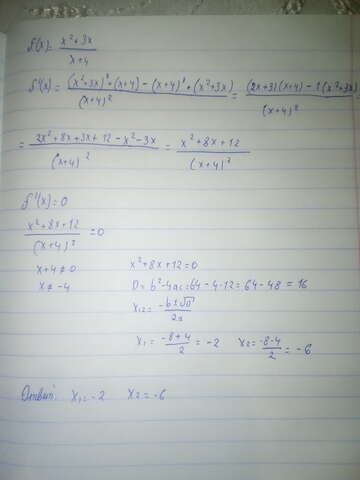 f(x) = (x²+3x)/(x+4)
f'(x) = ((x²+3x)' * (x+4) - (x+4)' * (x²+3x))/(x+4)² = ((2x+3)(x+4) - 1(x²+3x))/(x+4)²
= (2x²+8x+3x+12-x²-3x)/(x+4)² = (x²+8x+12)/(x+4)²
f'(x) = 0
(x²+8x+12)/(x+4)² = 0
x+4≠0 x²+8x+12=0
x≠-4 D = b²-4ac = 64-4·12 = 64-48 = 16
x₁,₂ = (-b±√D)/2a
x₁ = (-8+4)/2 = -2 x₂ = (-8-4)/2 = -6
Ответ: x₁=-2 x₂=-6